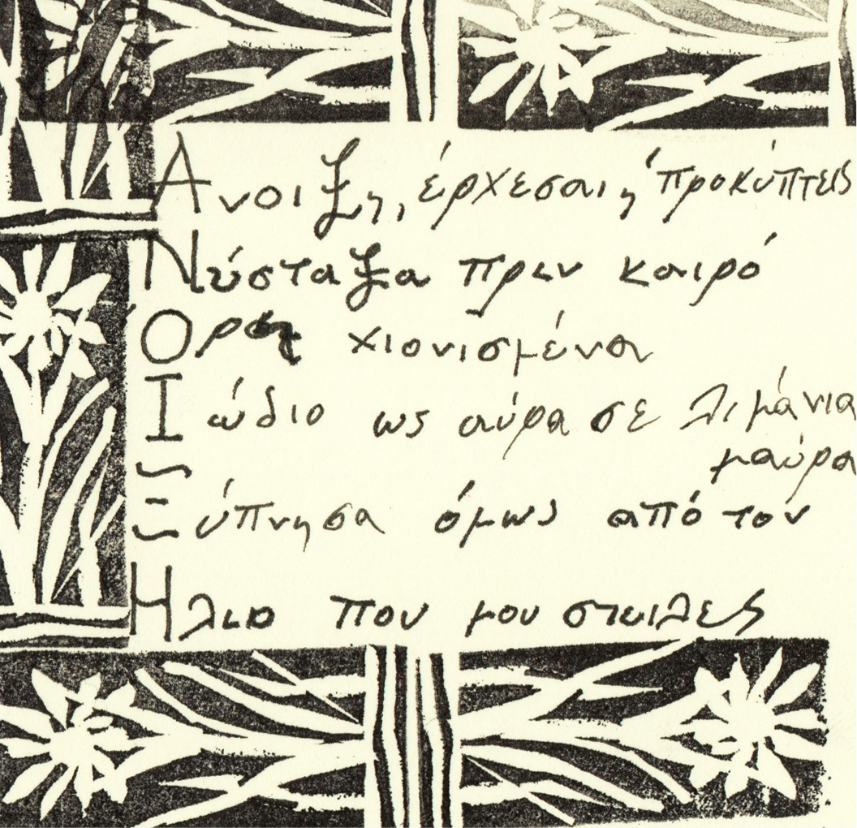 Ανοιξη, έρχεσαι ή προκύπτεις
Νύσταξα πριν καιρό
Ορη χιονισμένα
Ιώδιο ως αύρα σε λιμάνια
μαύρα
Ξύπνησα όμως από τον
Ηλιο που μου στειλες